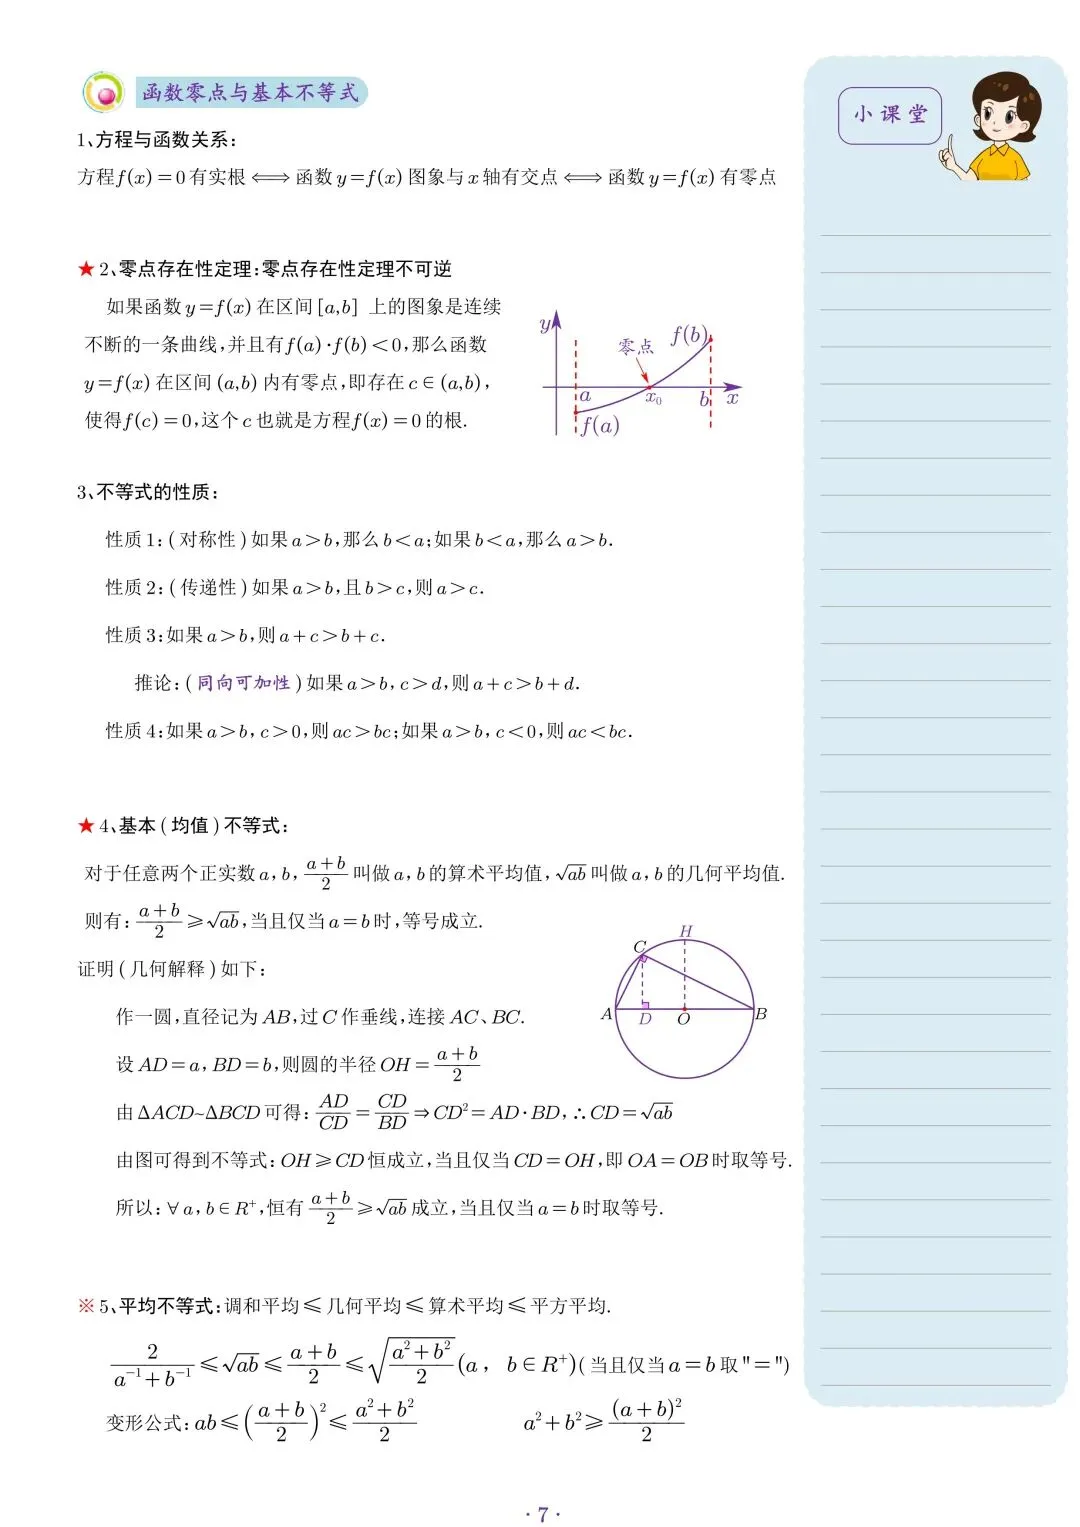 函数零点与基本不等式
小课堂
1、方程与函数关系:
方程f(x)=0有实根⟺函数y=f(x)图象与x轴有交点⟺函数y=f(x)有零点
★2、零点存在性定理:零点存在性定理不可逆
如果函数y=f(x)在区间[a,b]上的图象是连续
不断的一条曲线,并且有f(a)·f(b)<0,那么函数
y=f(x)在区间(a,b)内有零点,即存在c∈(a,b),
使得f(c)=0,这个c也就是方程f(x)=0的根.
y
零点
f(b)
a
x₀
b
x
f(a)
3、不等式的性质:
性质1:(对称性)如果a>b,那么b<a;如果b<a,那么a>b.
性质2:(传递性)如果a>b,且b>c,则a>c.
性质3:如果a>b,则a+c>b+c.
推论:(同向可加性)如果a>b,c>d,则a+c>b+d.
性质4:如果a>b,c>0,则ac>bc;如果a>b,c<0,则ac<bc.
★4、基本(均值)不等式:
对于任意两个正实数a,b,(a+b)/2叫做a,b的算术平均值,√ab叫做a,b的几何平均值.
则有:(a+b)/2≥√ab,当且仅当a=b时,等号成立.
证明(几何解释)如下:
作一圆,直径记为AB,过C作垂线,连接AC、BC.
设AD=a,BD=b,则圆的半径OH=(a+b)/2
由ΔACD~ΔBCD可得:AD/CD=CD/BD⇒CD²=AD·BD,∴CD=√ab
由图可得到不等式:OH≥CD恒成立,当且仅当CD=OH,即OA=OB时取等号.
所以:∀a,b∈R⁺,恒有(a+b)/2≥√ab成立,当且仅当a=b时取等号.
H
C
A
D
O
B
※5、平均不等式:调和平均≤几何平均≤算术平均≤平方平均.
2/(a⁻¹+b⁻¹)≤√ab≤(a+b)/2≤√((a²+b²)/2)(a, b∈R⁺)(当且仅当a=b取"=")
变形公式:ab≤((a+b)/2)²≤(a²+b²)/2 a²+b²≥(a+b)²/2
·7·